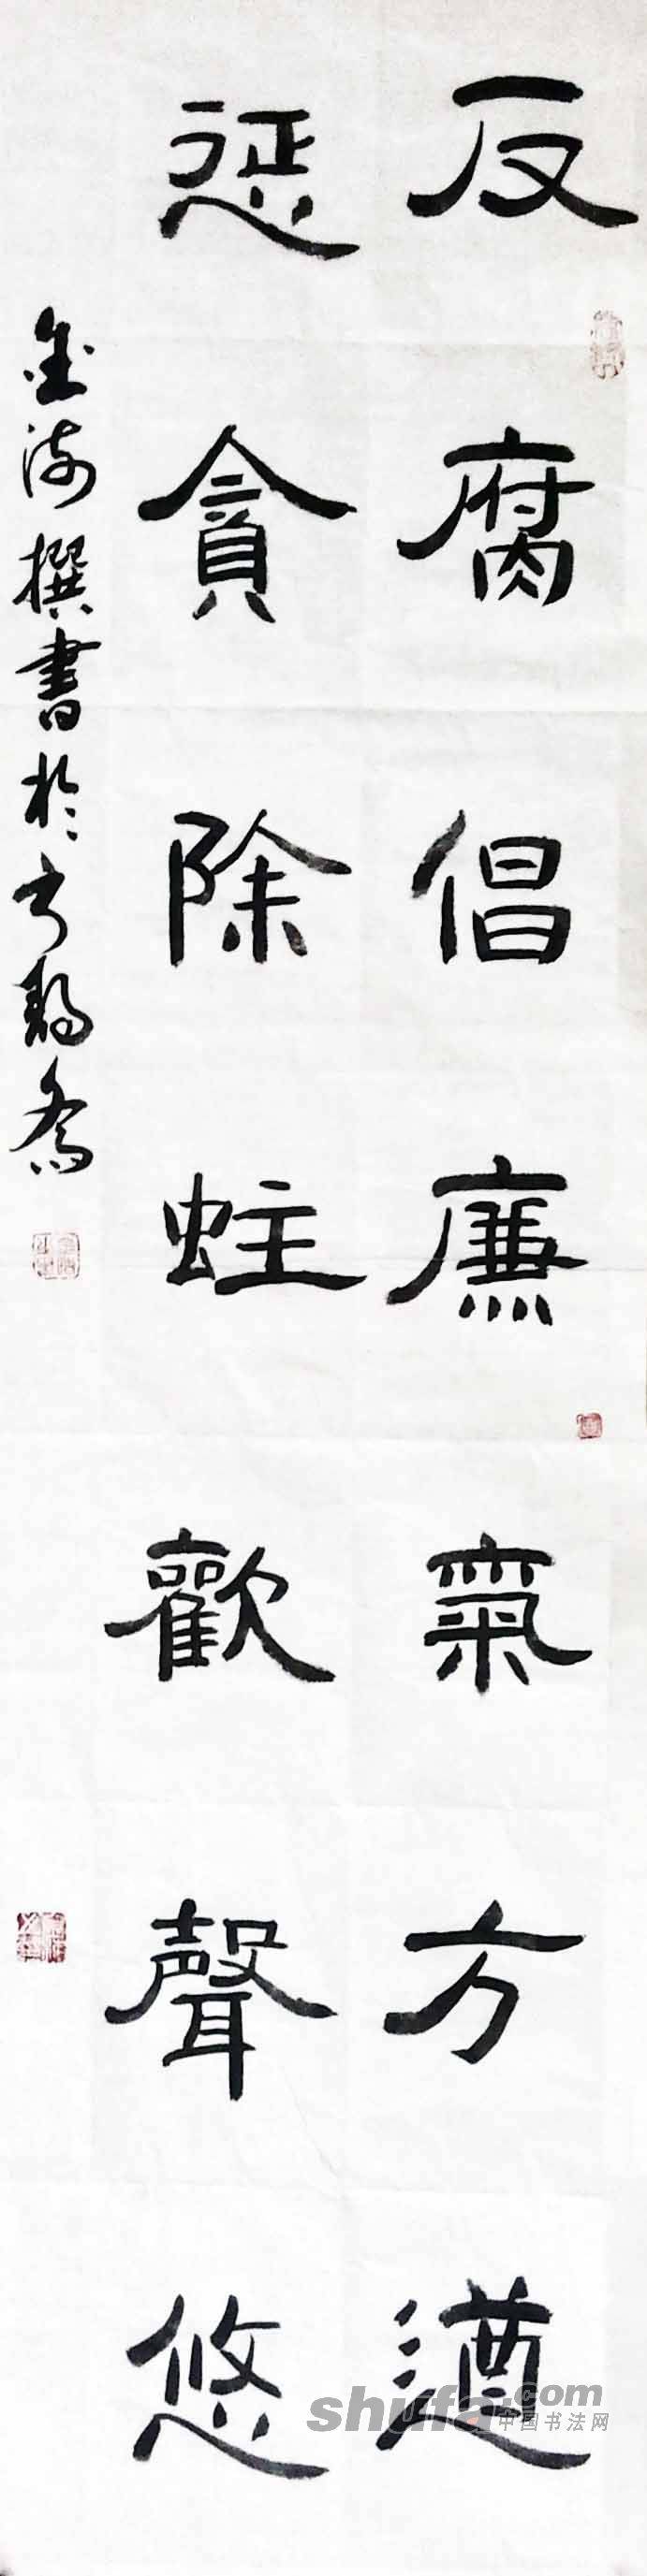 反腐倡廉氣方遒
惩貪除蛀歡聲悠
金海撰書於
shufa.com
中国书法网